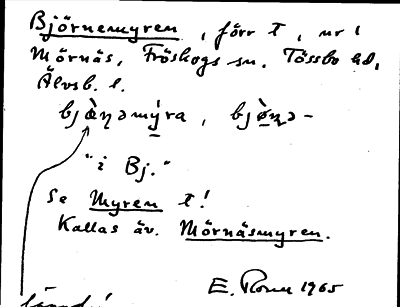 Björnemyren, förr t, nr 1
Mörnäs, Fröskogs sn. Tössbo hd,
Älvsb. l.
bjæ̀ɳəmýra, bjø̀ɳə-
"i Bj."
Se Myren t!
Kallas äv. Mörnäsmyren.
E. 1965